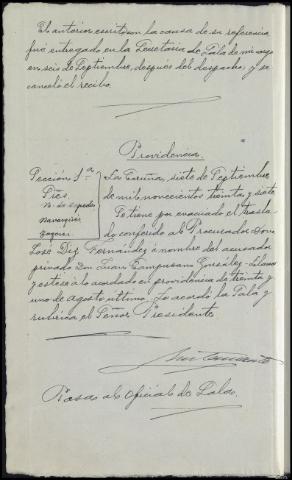 El anterior escrito con la causa de su referencia
fué entregado en la Secretaría de Sala de mi cargo
en seis de Septiembre, después del despacho, y se
canceló el recibo.
Providencia
Sección 1ª
Sres.
Navarrizas
La Coruña, siete de Septiembre
de mil novecientos treinta y siete
Se tiene por evacuado el trasla
do conferido al Procurador Don
José Diz Fernández a nombre del acusador
privado Don Juan Campusano González-
y estese a lo acordado en providencia de treinta y
uno de agosto último. Lo acordó la Sala y
rubrica el Señor Presidente
Pasa al oficial de Sala.